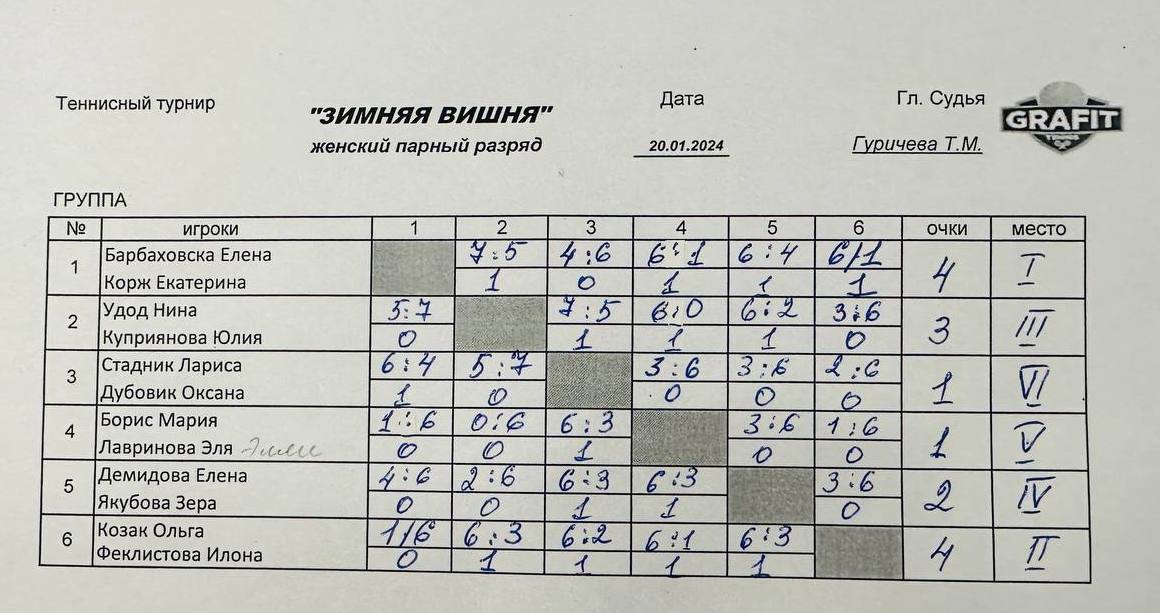 Теннисный турнир "ЗИМНЯЯ ВИШНЯ" Дата Гл. Судья GRAFIT
женский парный разряд 20.01.2024 Гуричева Т.М.
ГРУППА
№ игроки 1 2 3 4 5 6 очки место
1 Барбаховска Елена 7:5 4:6 6:1 6:4 6/1 4 I
Корж Екатерина 1 0 1 1 1
2 Удод Нина 5:7 7:5 6:0 6:2 3:6 3 III
Куприянова Юлия 0 1 1 1 0
3 Стадник Лариса 6:4 5:7 3:6 3:6 2:6 1 VI
Дубовик Оксана 1 0 0 0 0
4 Борис Мария 1:6 0:6 6:3 3:6 1:6 1 V
Лавринова Эля 0 0 1 0 0
5 Демидова Елена 4:6 2:6 6:3 6:3 3:6 2 IV
Якубова Зера 0 0 1 1 0
6 Козак Ольга 1/6 6:3 6:2 6:1 6:3 4 II
Феклистова Илона 0 1 1 1 1